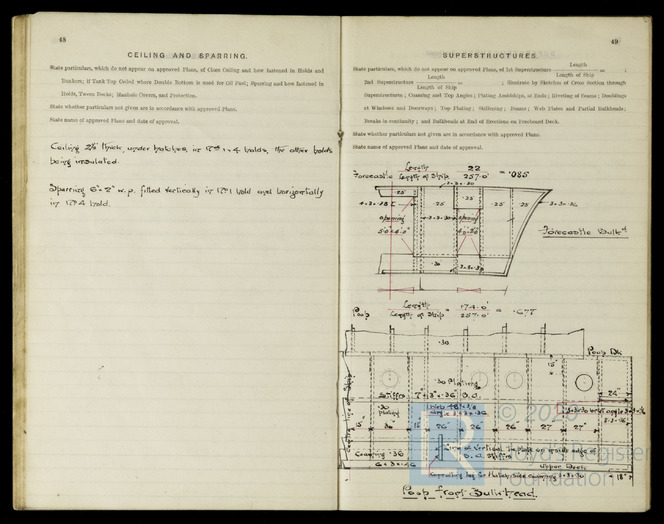 48
CEILING AND SPARRING.
State particulars, which do not appear on approved Plans, of Close Ceiling and how fastened in Holds and
Bunkers; if Tank Top Ceiled where Double Bottom is used for Oil Fuel; Sparring and how fastened in
Holds, Tween Decks; Manhole Covers, and Protection.
State whether particulars not given are in accordance with approved Plans.
State name of approved Plans and date of approval.
Ceiling 2½" thick, under hatches in Nos 1 & 4 holds, the other holds
being insulated.
Sparring 6"·2" w.p. fitted vertically in No 1 hold and horizontally
in No 4 hold.
49
SUPERSTRUCTURES.
State particulars, which do not appear on approved Plans, of 1st Superstructure Length / Length of Ship = ;
2nd Superstructure Length / Length of Ship = ; illustrate by Sketches of Cross Section through
Superstructures; Coaming and Top Angles; Plating Amidships, at Ends; Riveting of Seams; Doublings
at Windows and Doorways; Top Plating; Stiffening; Beams; Web Plates and Partial Bulkheads;
Breaks in continuity; and Bulkheads at End of Erections on Freeboard Deck.
State whether particulars not given are in accordance with approved Plans.
State name of approved Plans and date of approval.
Forecastle Length / Length of Ship 22 / 257.0' = .085
3×3×.30
.25 .25 .25 .25
opening opening
.30 3×3×.30
Forecastle Bulkd
Poop Length / Length of Ship 174.0' / 257.0' = .677
.30
Poop Dk
.30 Plating
Stiffrs 7"×3"×.36" B.A.
24"
.30 plating
26" 26 26 27 27"
Centre line of Ship
Coaming .36
6×3×.46
Upper Deck
18"
Poop front Bulkhead.
© 2025
LR
Lloyd's Register
Foundation